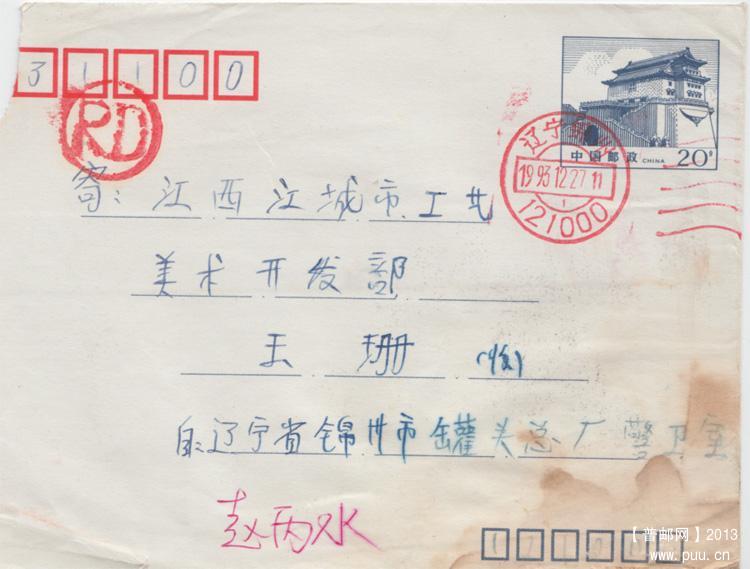 31100
RD
中国邮政 CHINA 20分
辽宁
1993.12.27.11
1
121000
寄: 江西江城市工艺
美术开发部
王 珊 (收)
自:辽宁省锦州市罐头总厂警卫室
赵丙水
【普邮网】2013
www.puu.cn